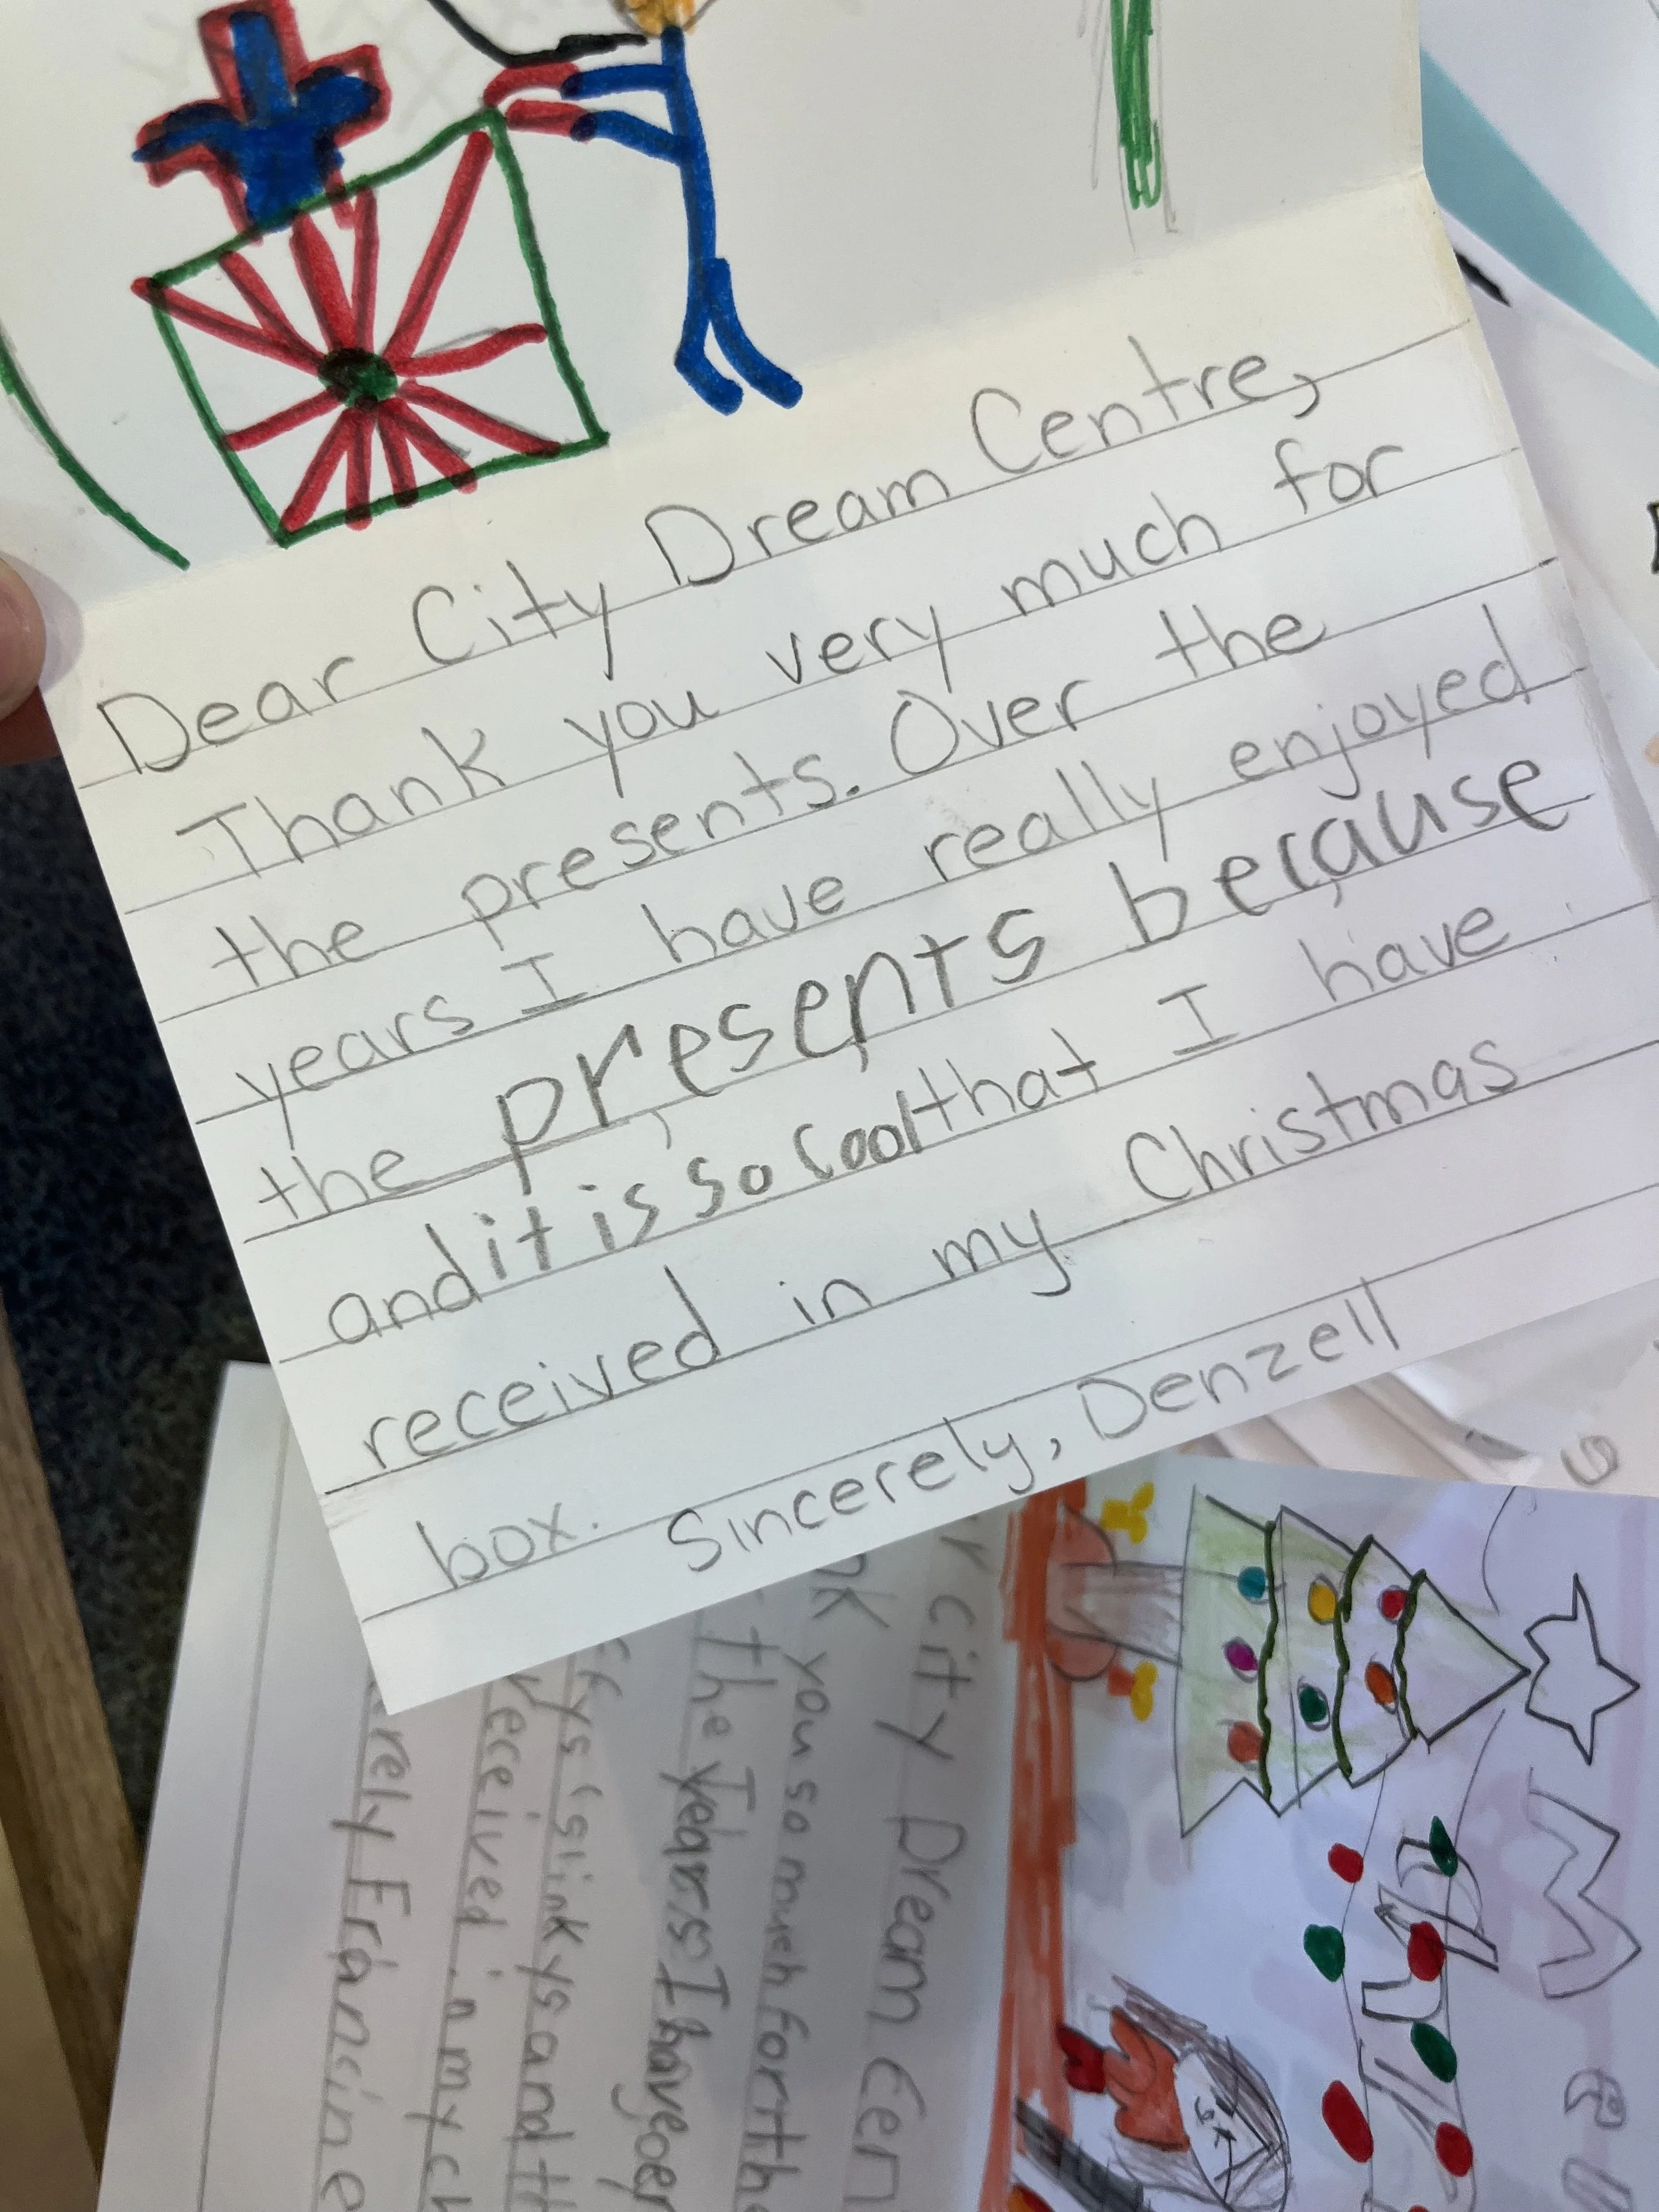 Dear City Dream Centre,
Thank you very much for
the presents. Over the
years I have really enjoyed
the presents because
and it is so cool that I have
received in my Christmas
box. Sincerely, Denzell
City Dream Cen
you so much for the
the Years I have
slinkys and
received in my ch
rely Francine